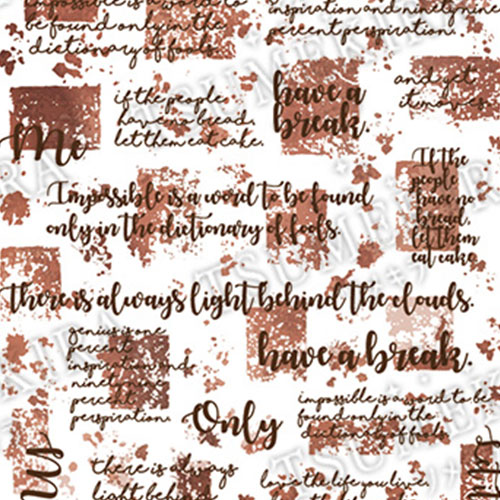 impossible is a word to
be found only in the
dictionary of fools.
inspiration and ninety nine
percent perspiration.
if the people
have no bread,
let them eat cake.
have a
break.
and yet
it moves.
Me
If the
people
have no
bread,
let them
eat cake.
Impossible is a word to be found
only in the dictionary of fools.
There is always light behind the clouds.
genius is one
percent
inspiration and
ninety nine
percent
perspiration.
have a break.
Only
impossible is a word to be
found only in the
dictionary of fools.
us
there is always
light behind
love the life you live.
TSUMEKIRA